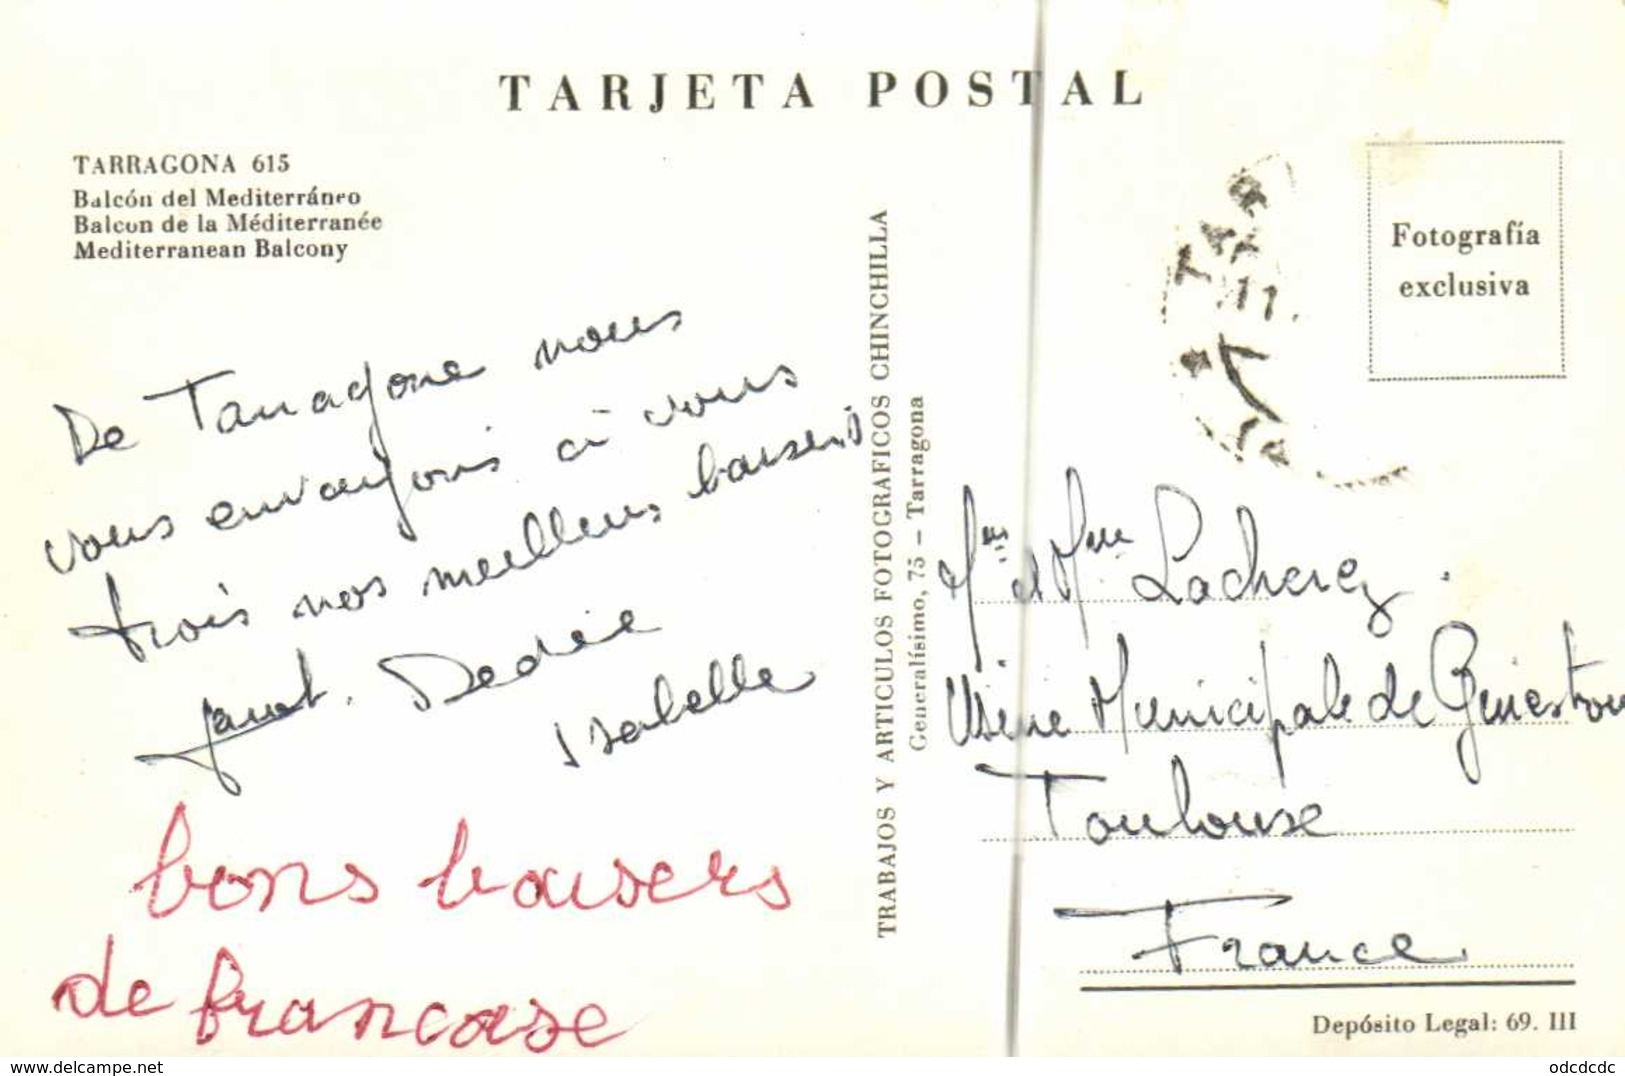 TARJETA POSTAL
TARRAGONA 615
Balcón del Mediterráneo
Balcon de la Méditerranée
Mediterranean Balcony
De Tarragone nous
vous envoyons à vous
trois nos meilleurs baisers
Dédée
Isabelle
bons baisers
de francose
TRABAJOS Y ARTICULOS FOTOGRAFICOS CHINCHILLA
Generalísimo, 75 – Tarragona
TAR
11.
Fotografía
exclusiva
Mr et Mme Lacherez.
Usine Municipale de Ginestou
Toulouse
France
Depósito Legal: 69. III
delcampe.net
odcdcdc